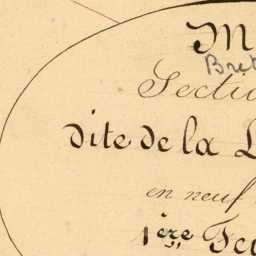 M
Bret
Sectio
dite de la L
en neuf
1ère Feu